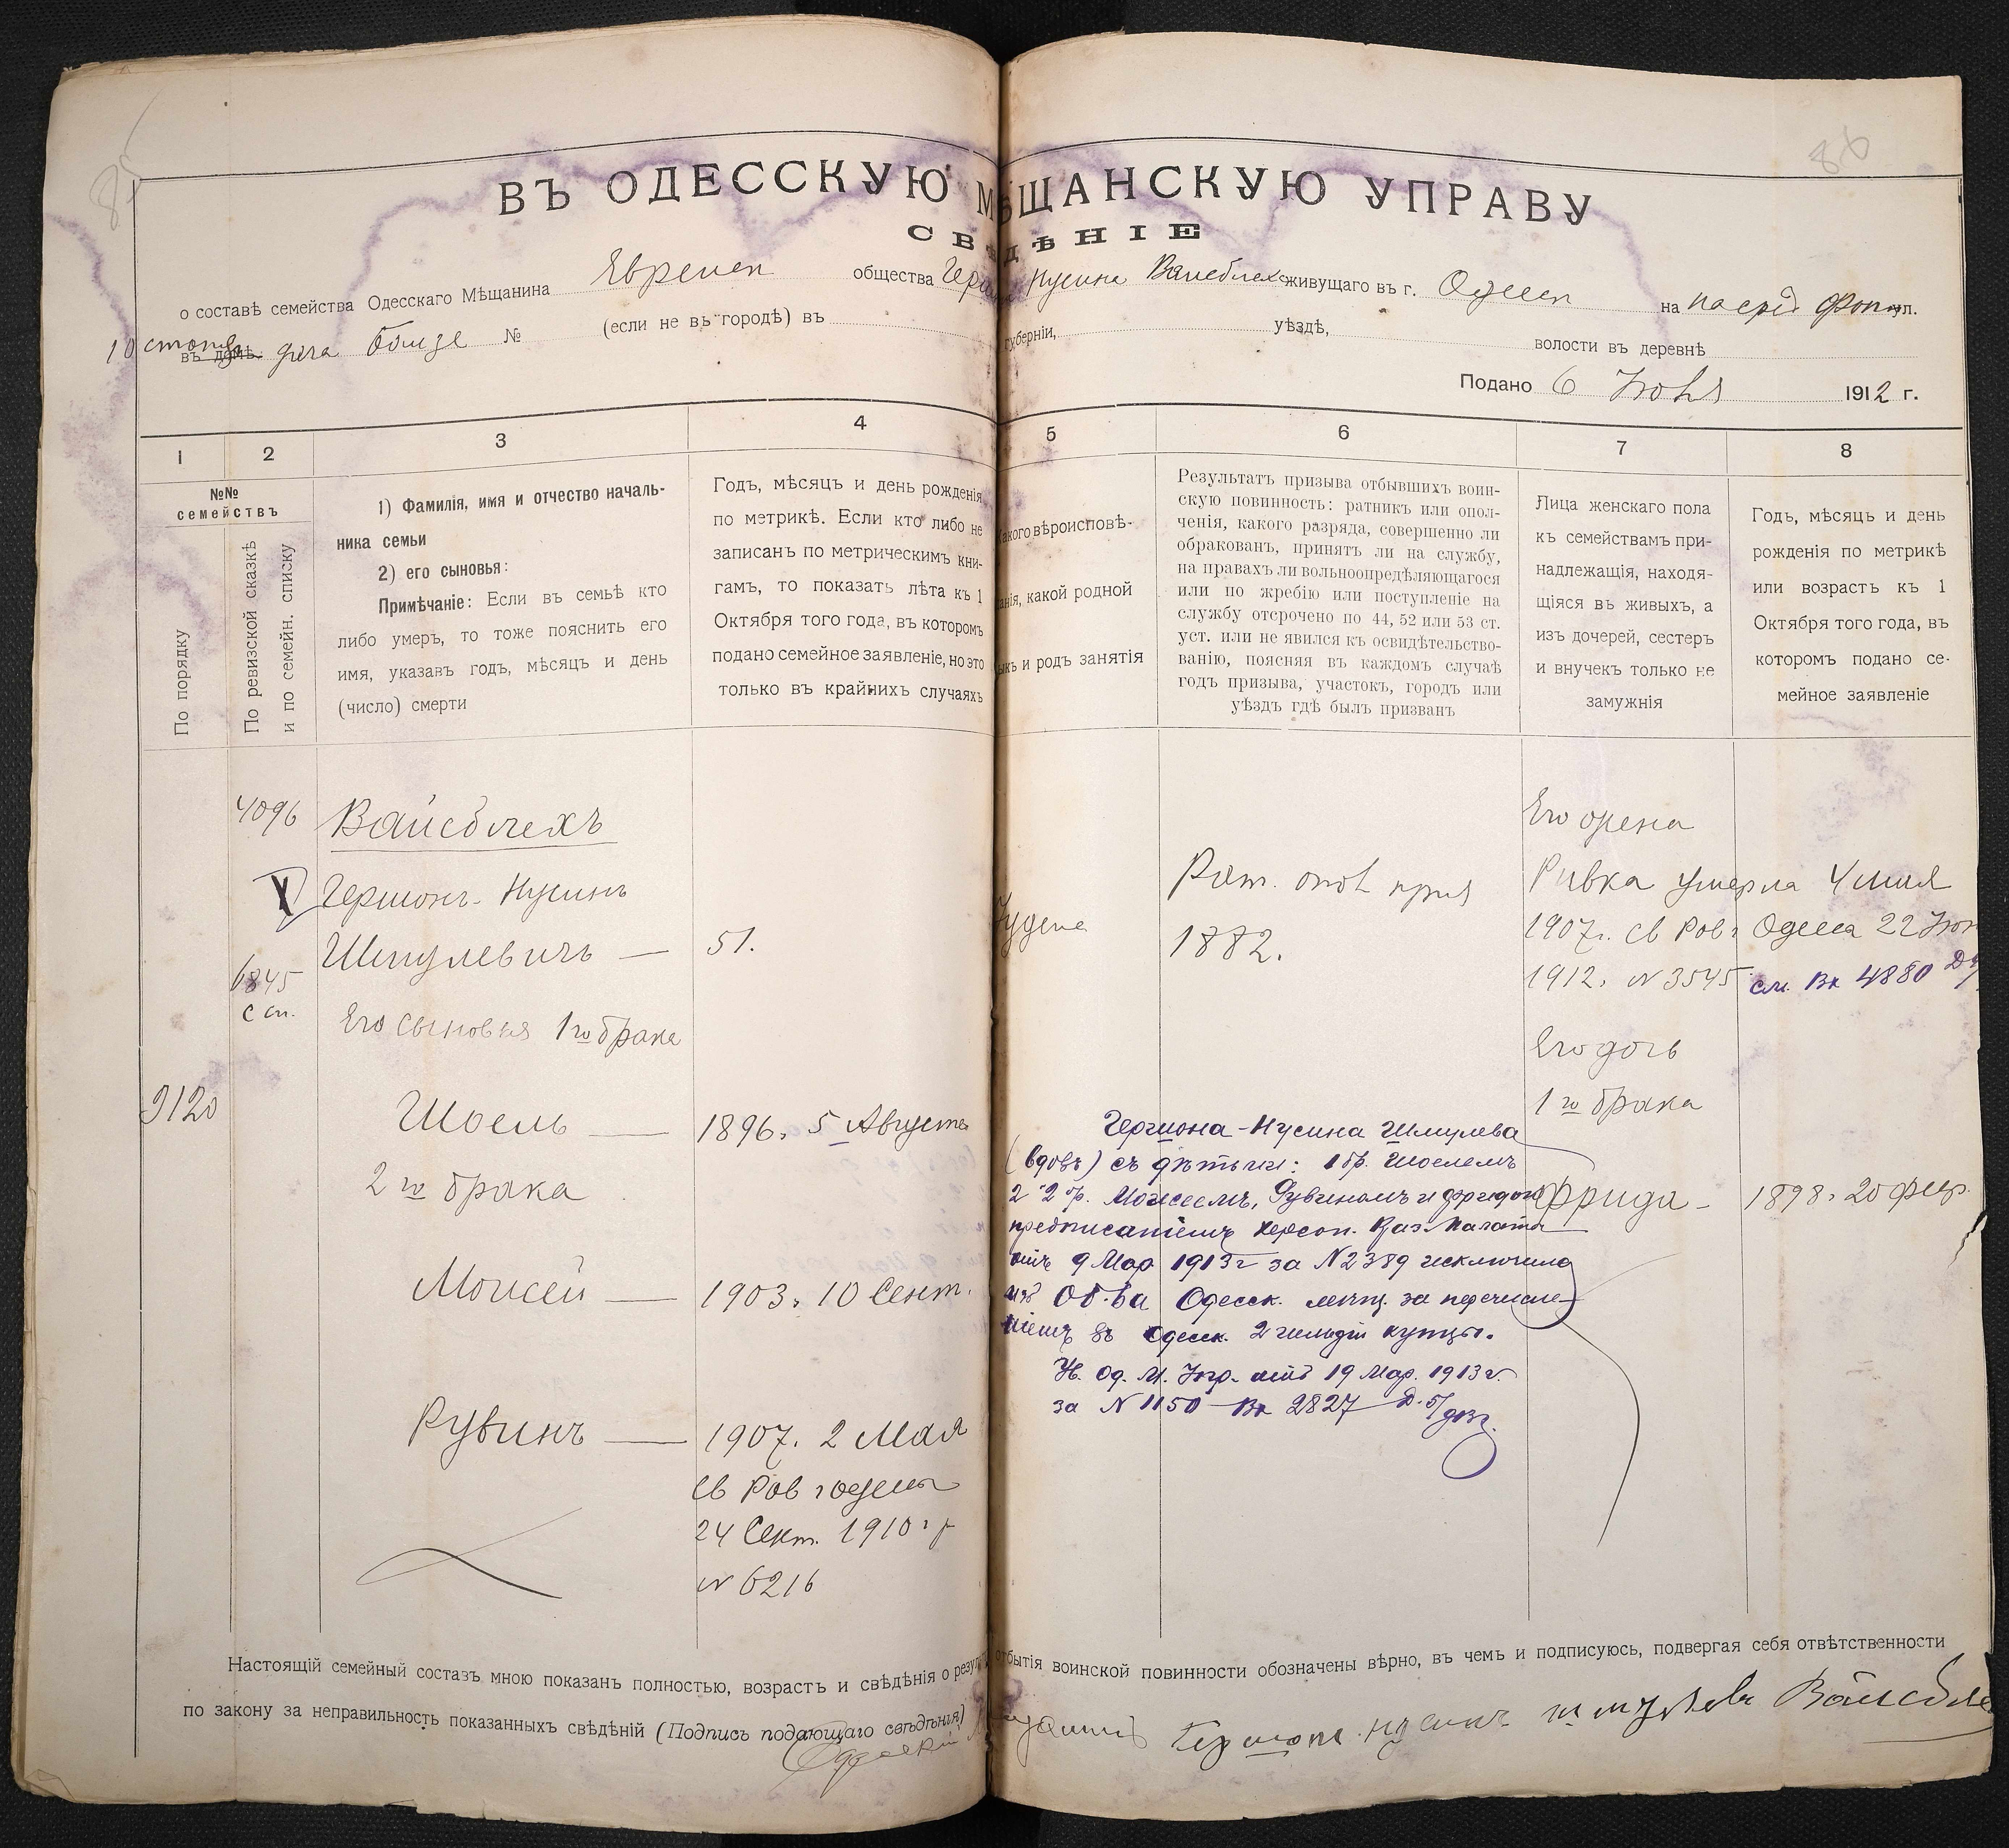 85
86
ВЪ ОДЕССКУЮ МѢЩАНСКУЮ УПРАВУ
СВѢДѢНІЕ
о составѣ семейства Одесскаго Мѣщанина Евреися общества Герш Нусина Вайсблехъ живущаго въ г. Одессп на ул.
10 въ домѣ дача № (если не въ городѣ) въ губерніи, уѣздѣ, волости въ деревнѣ
Подано 6 Іюня 1912 г.
1 2 3 4 5 6 7 8
№№ семействъ
По порядку
По ревизской сказкѣ
и по семейн. списку
1) Фамилія, имя и отчество началь-
ника семьи
2) его сыновья:
Примѣчаніе: Если въ семьѣ кто
либо умеръ, то тоже пояснить его
имя, указавъ годъ, мѣсяцъ и день
(число) смерти
Годъ, мѣсяцъ и день рожденія
по метрикѣ. Если кто либо не
записанъ по метрическимъ кни-
гамъ, то показать лѣта къ 1
Октября того года, въ которомъ
подано семейное заявленіе, но это
только въ крайнихъ случаяхъ
Какого вѣроисповѣ-
данія, какой родной
языкъ и родъ занятія
Результатъ призыва отбывшихъ воин-
скую повинность: ратникъ или опол-
ченія, какого разряда, совершенно ли
обракованъ, принятъ ли на службу,
на правахъ ли вольноопредѣляющагося
или по жребію или поступленіе на
службу отсрочено по 44, 52 или 53 ст.
уст. или не явился къ освидѣтельство-
ванію, поясняя въ каждомъ случаѣ
годъ призыва, участокъ, городъ или
уѣздъ гдѣ былъ призванъ
Лица женскаго пола
къ семействамъ при-
надлежащія, находя-
щіяся въ живыхъ, а
изъ дочерей, сестеръ
и внучекъ только не
замужнія
Годъ, мѣсяцъ и день
рожденія по метрикѣ
или возрастъ къ 1
Октября того года, въ
которомъ подано се-
мейное заявленіе
4096
Вайсблехъ
Гершонъ-Нусинъ
Шмулевичъ — 51.
6845
с сп.
Іудеие
Рат. опол
1882.
Его жена
Ривка умерла 4 мая
1907г. св Рав. Одесса 22 Іюн
1912. № 3545 см. Вх 4880
Его сыновья 1го брака
9120
Шоель — 1896, 5 Августа
2го брака
Моисей — 1903, 10 Сент.
Рувинъ — 1907. 2 Мая
св Рав г Одессы
24 Сент. 1910 г
№ 6216
Его дочь
1го брака
Фрида — 1898, 20 Фев.
Гершона-Нусина Шмулева
(вдовъ) съ дѣтьми: 1 бр. Шоелемъ
2 бр. Моисеемъ, Рувиномъ и Фридою
предписаніемъ Херсон. Каз. Палаты
отъ 9 Мар 1913 г за № 2389 исключить
изъ Об-ва Одесск. мѣщ. за перечисле-
ніемъ въ Одесск. 2 гильдіи купцы.
Ув. Од. М. Упр. отъ 19 Мар. 1913 г.
за № 1150 Вх 2827
Настоящій семейный составъ мною показанъ полностью, возрастъ и свѣдѣнія о результ. отбытія воинской повинности обозначены вѣрно, въ чемъ и подписуюсь, подвергая себя отвѣтственности
по закону за неправильность показанныхъ свѣдѣній (Подпись подающаго свѣдѣнія)
Одесскій Гершонъ Нусинъ Шмулевъ Вайсбле